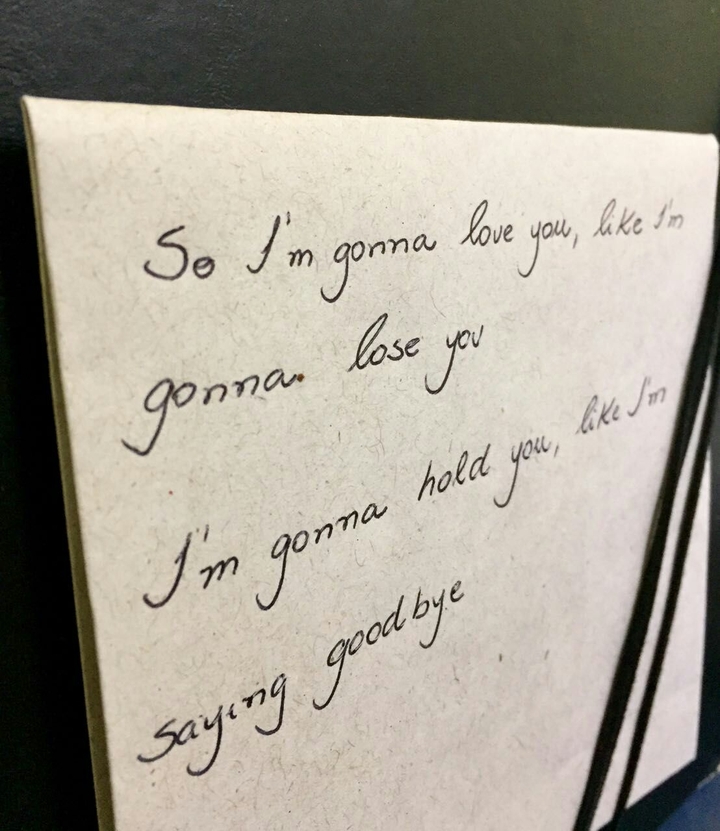 So I'm gonna love you, like I'm
gonna lose you
I'm gonna hold you, like I'm
saying goodbye